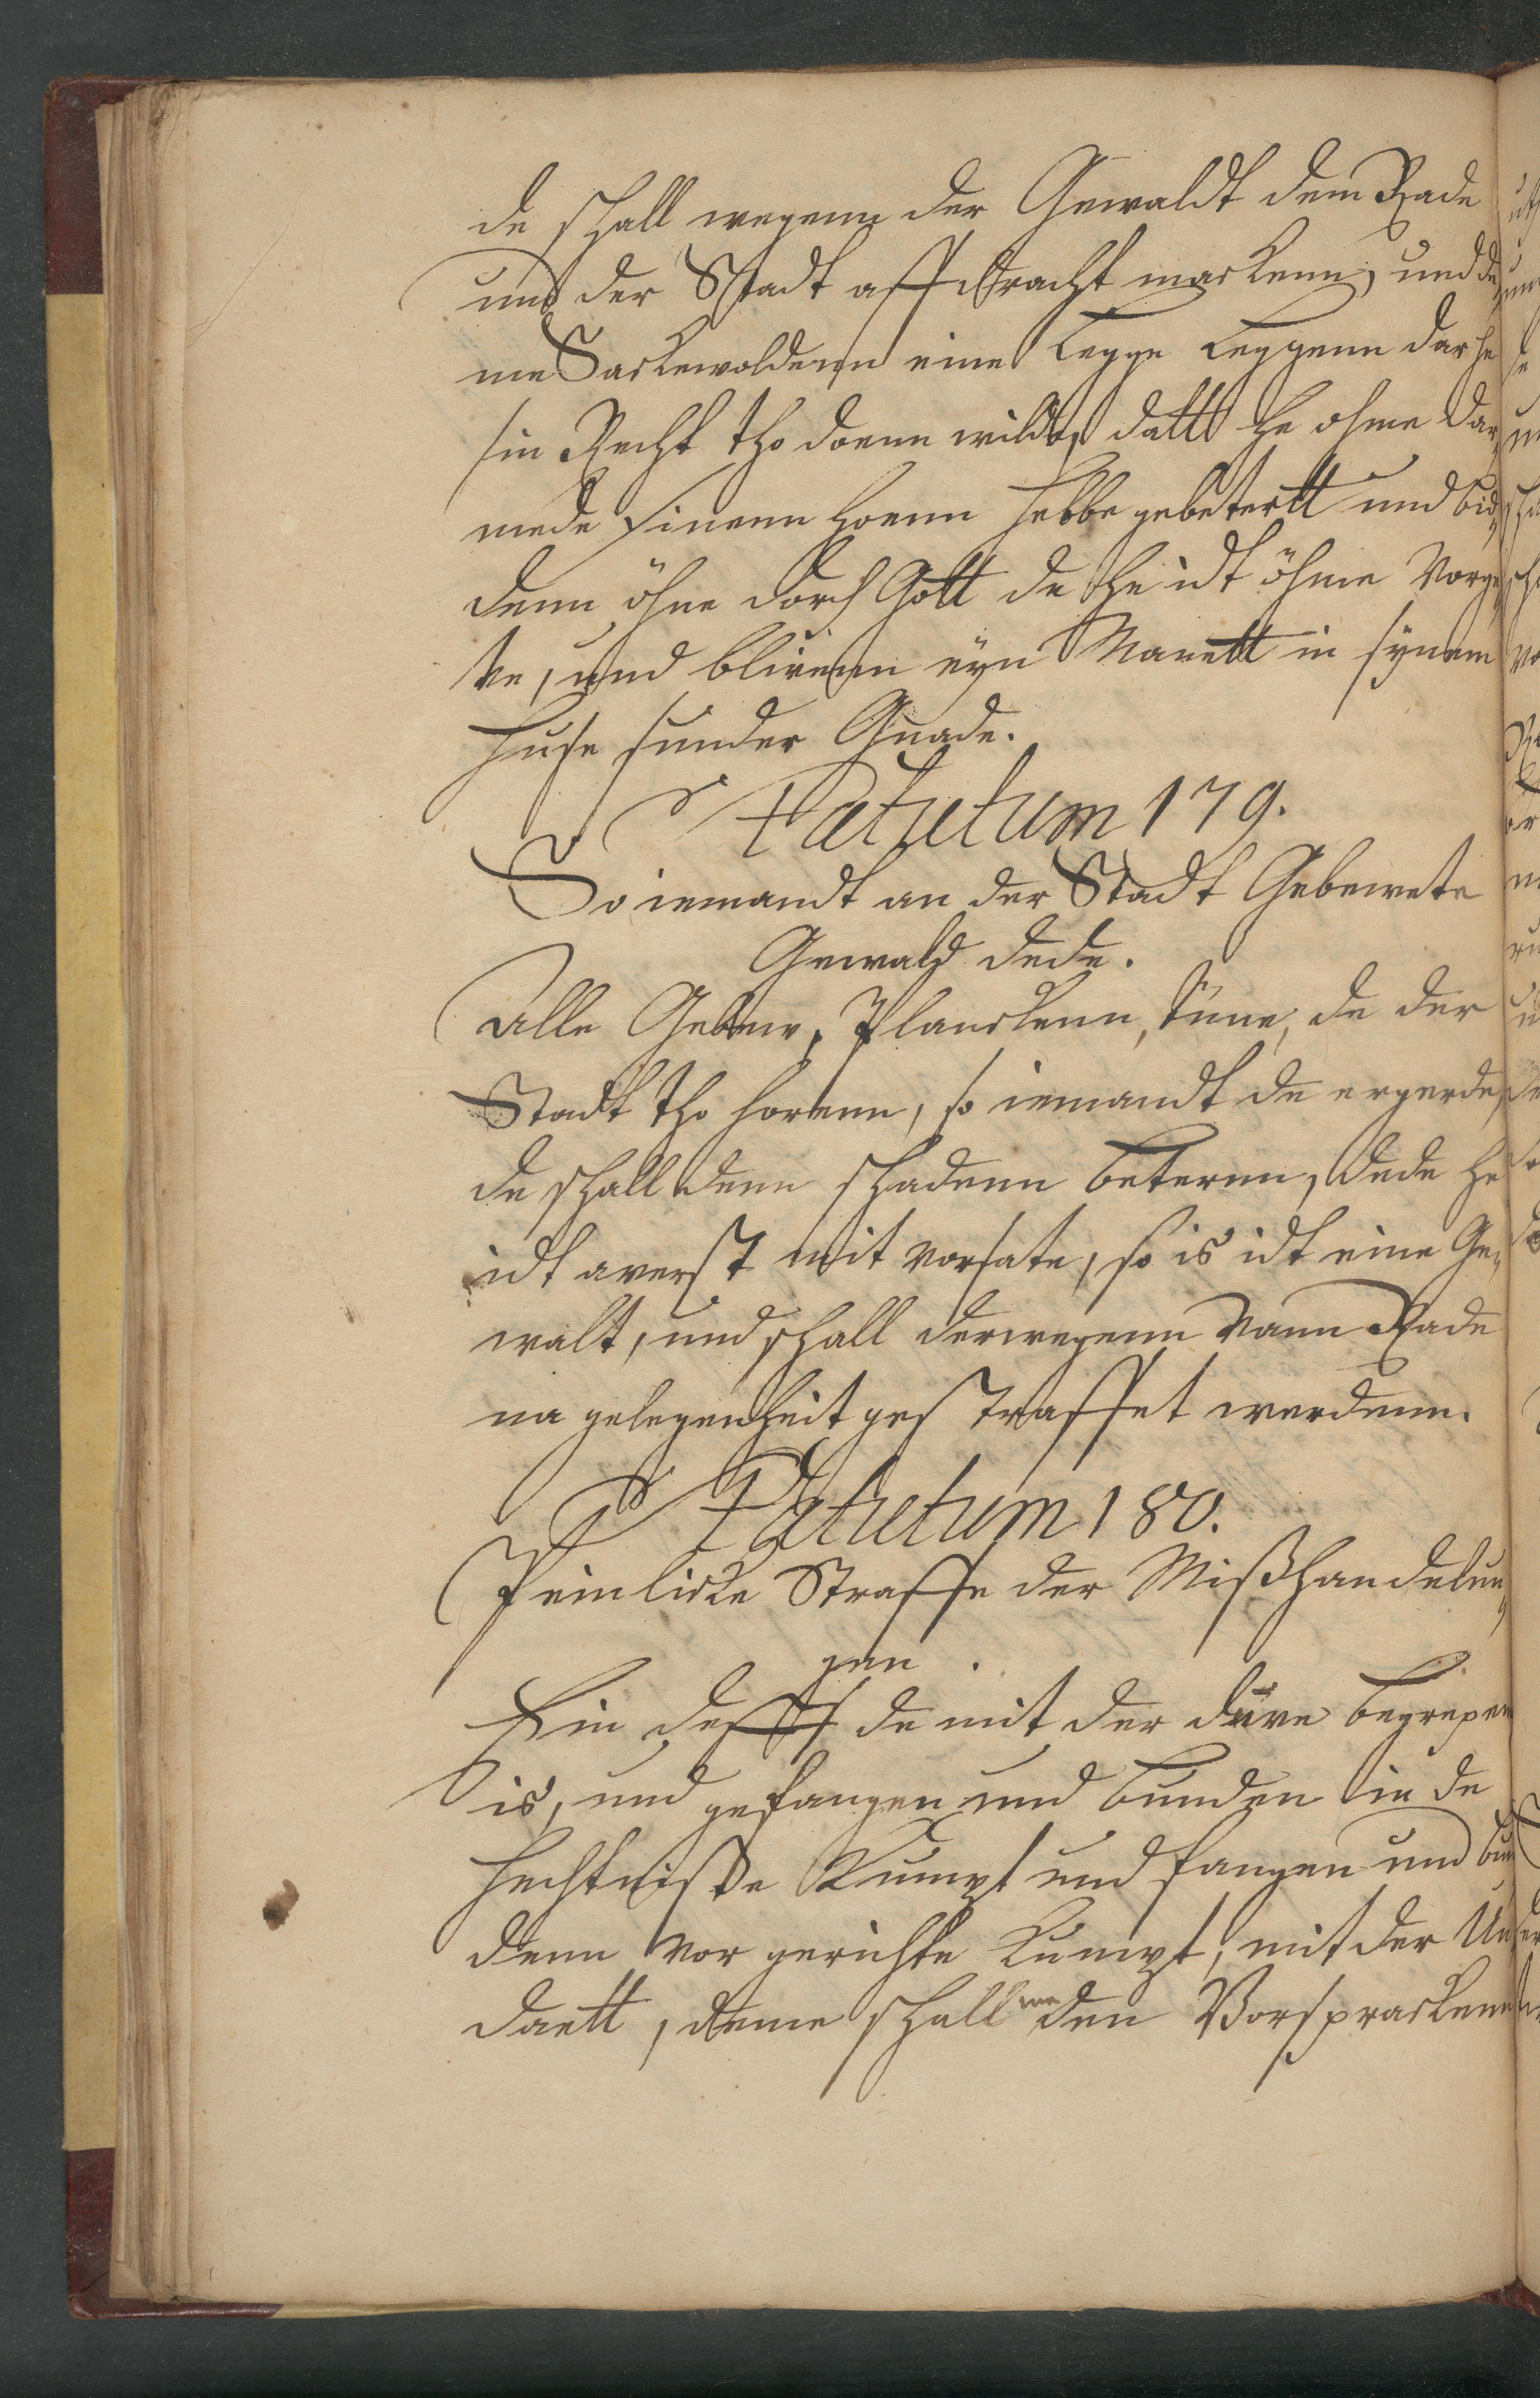 de schall wegenn der Gewaldt dem Rade
und der Stadt affdracht mackenn, und de„
me Sackewoldenn eine legge leggenn dar he
sin Recht tho doenn wilde, datt he ohme dar„
mede sinenn hoenn hebbe gebetertt und bid„
denn öhne dorch Gott de he idt öhme vorge„
ve, und blivenn eyn Manett in synem
huse sunder Gnade.
Statutum 179.
So iemandt an der Stadt Gebewete
Gewald dede.
Alle Gebew, Planckenn, tüne, de der
Stadt tho horenn, so iemandt de ergerde,
de schall denn schadenn beterenn, dede he
idt averst mit vorsate, so is idt eine Ge„
walt, und schall derwegenn vann Rade
na gelegenheit gestraffet werdenn.
Statutum 180.
Peinlicke Straffe der Mißhandelun„
gen.
Ein deff de mit der duve begrepen
is, und gefangen und bunden in de
hechtnisse kumpt und fangen und bun
denn vor gerichte kumpt, mit der Un
daett, deme schall me den Vorsprackenn